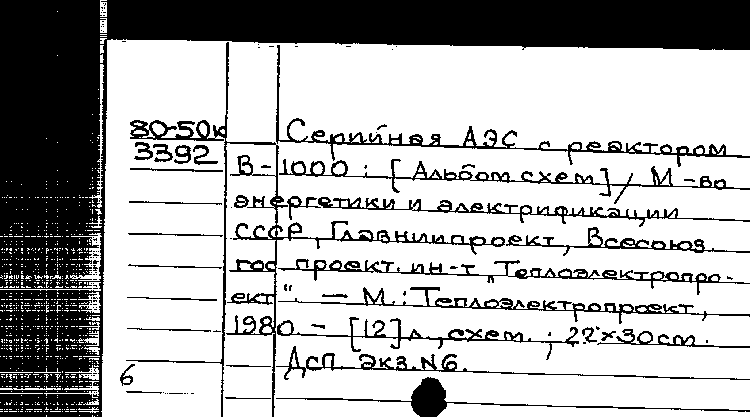 80-50к Серийная АЭС с реактором
3392 В-1000 : [Альбом схем] / М-во
энергетики и электрификации
СССР, Главниипроект, Всесоюз.
гос. проект. ин-т „Теплоэлектропро-
ект“. — М. : Теплоэлектропроект,
1980. - [12] л., схем. ; 22×30 cm.
Дсп. Экз. N6.
6